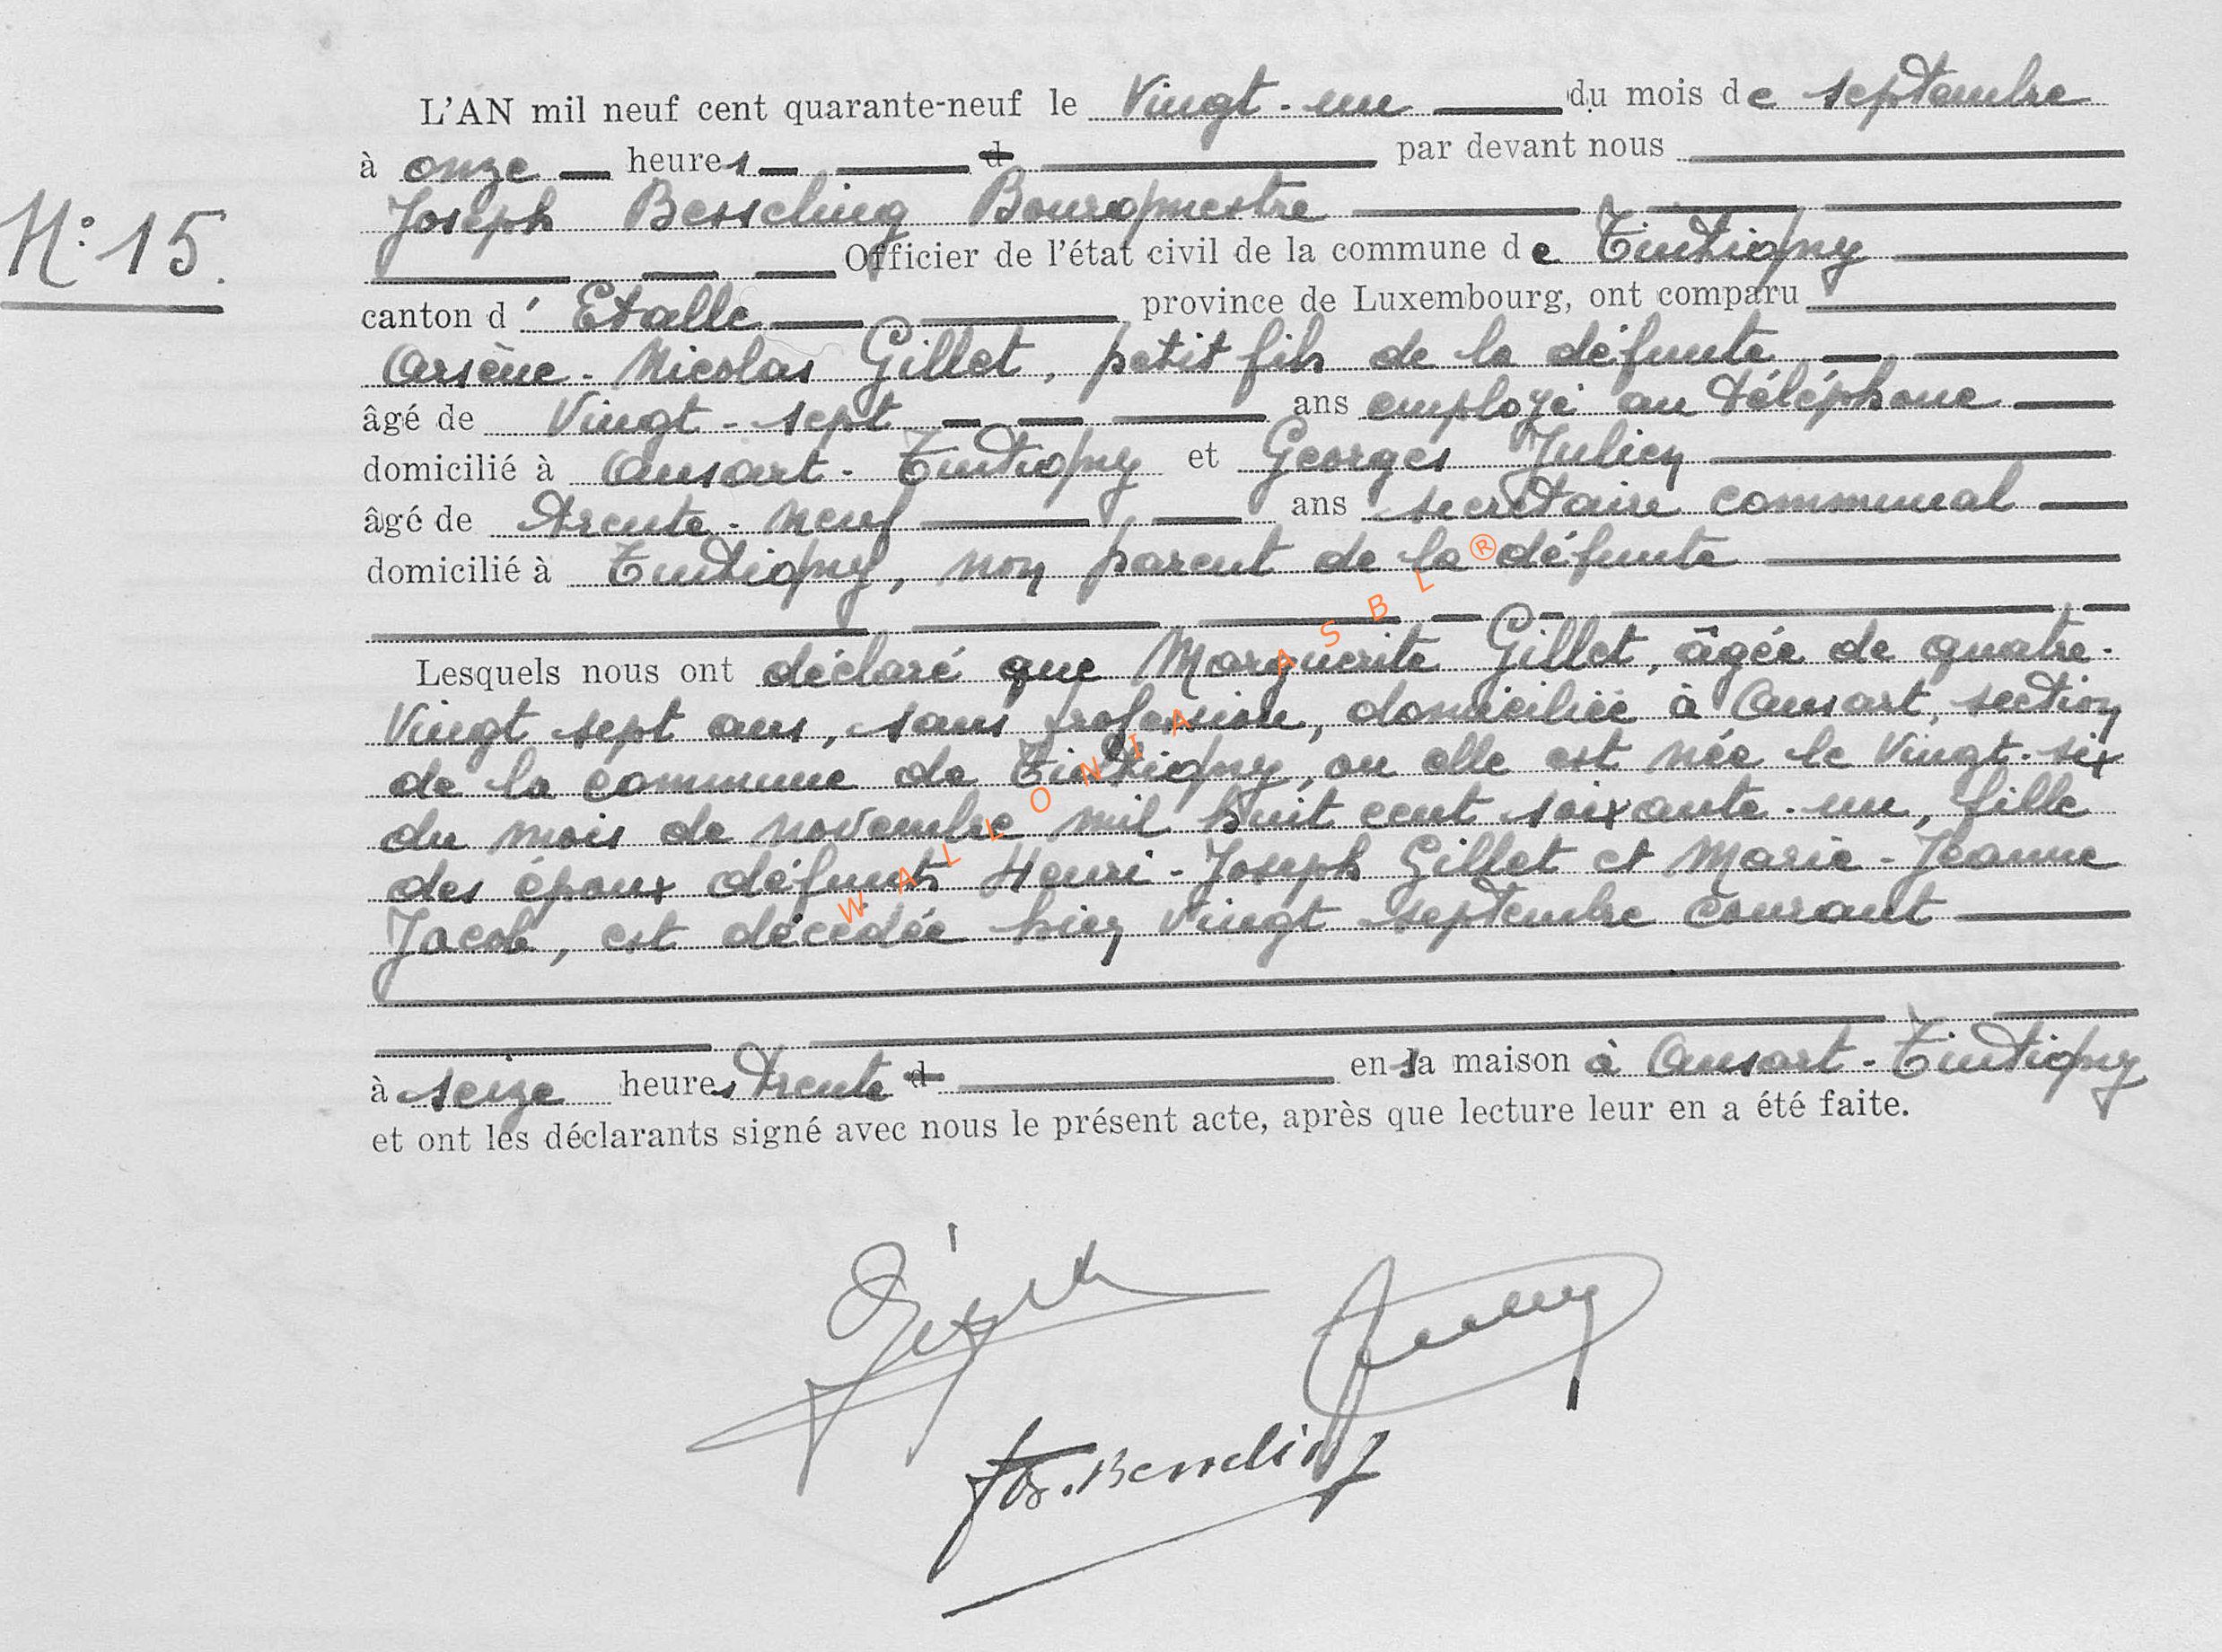 L'AN mil neuf cent quarante-neuf le Vingt-un du mois de septembre
à onze heures d par devant nous
N° 15.
Joseph Bessching Bourgmestre
Officier de l'état civil de la commune de Tintigny
canton d' Etalle province de Luxembourg, ont comparu
Arsène-Nicolas Gillet, petit fils de la défunte
âgé de Vingt-sept ans employé au téléphone
domicilié à Ansart-Tintigny et Georges Julien
âgé de trente-neuf ans secrétaire communal
domicilié à Tintigny, non parent de la défunte
Lesquels nous ont déclaré que Marguerite Gillet, âgée de quatre-
Vingt sept ans, sans profession, domiciliée à Ansart, section
de la commune de Tintigny, ou elle est née le Vingt-six
du mois de novembre mil huit cent soixante-un, fille
des époux défunts Henri-Joseph Gillet et Marie-Jeanne
Jacob, est décédée hier Vingt septembre courant
à seize heures trente d en sa maison à Ansart-Tintigny
et ont les déclarants signé avec nous le présent acte, après que lecture leur en a été faite.
Jos. Bessching
WALLONIA ASBL ®